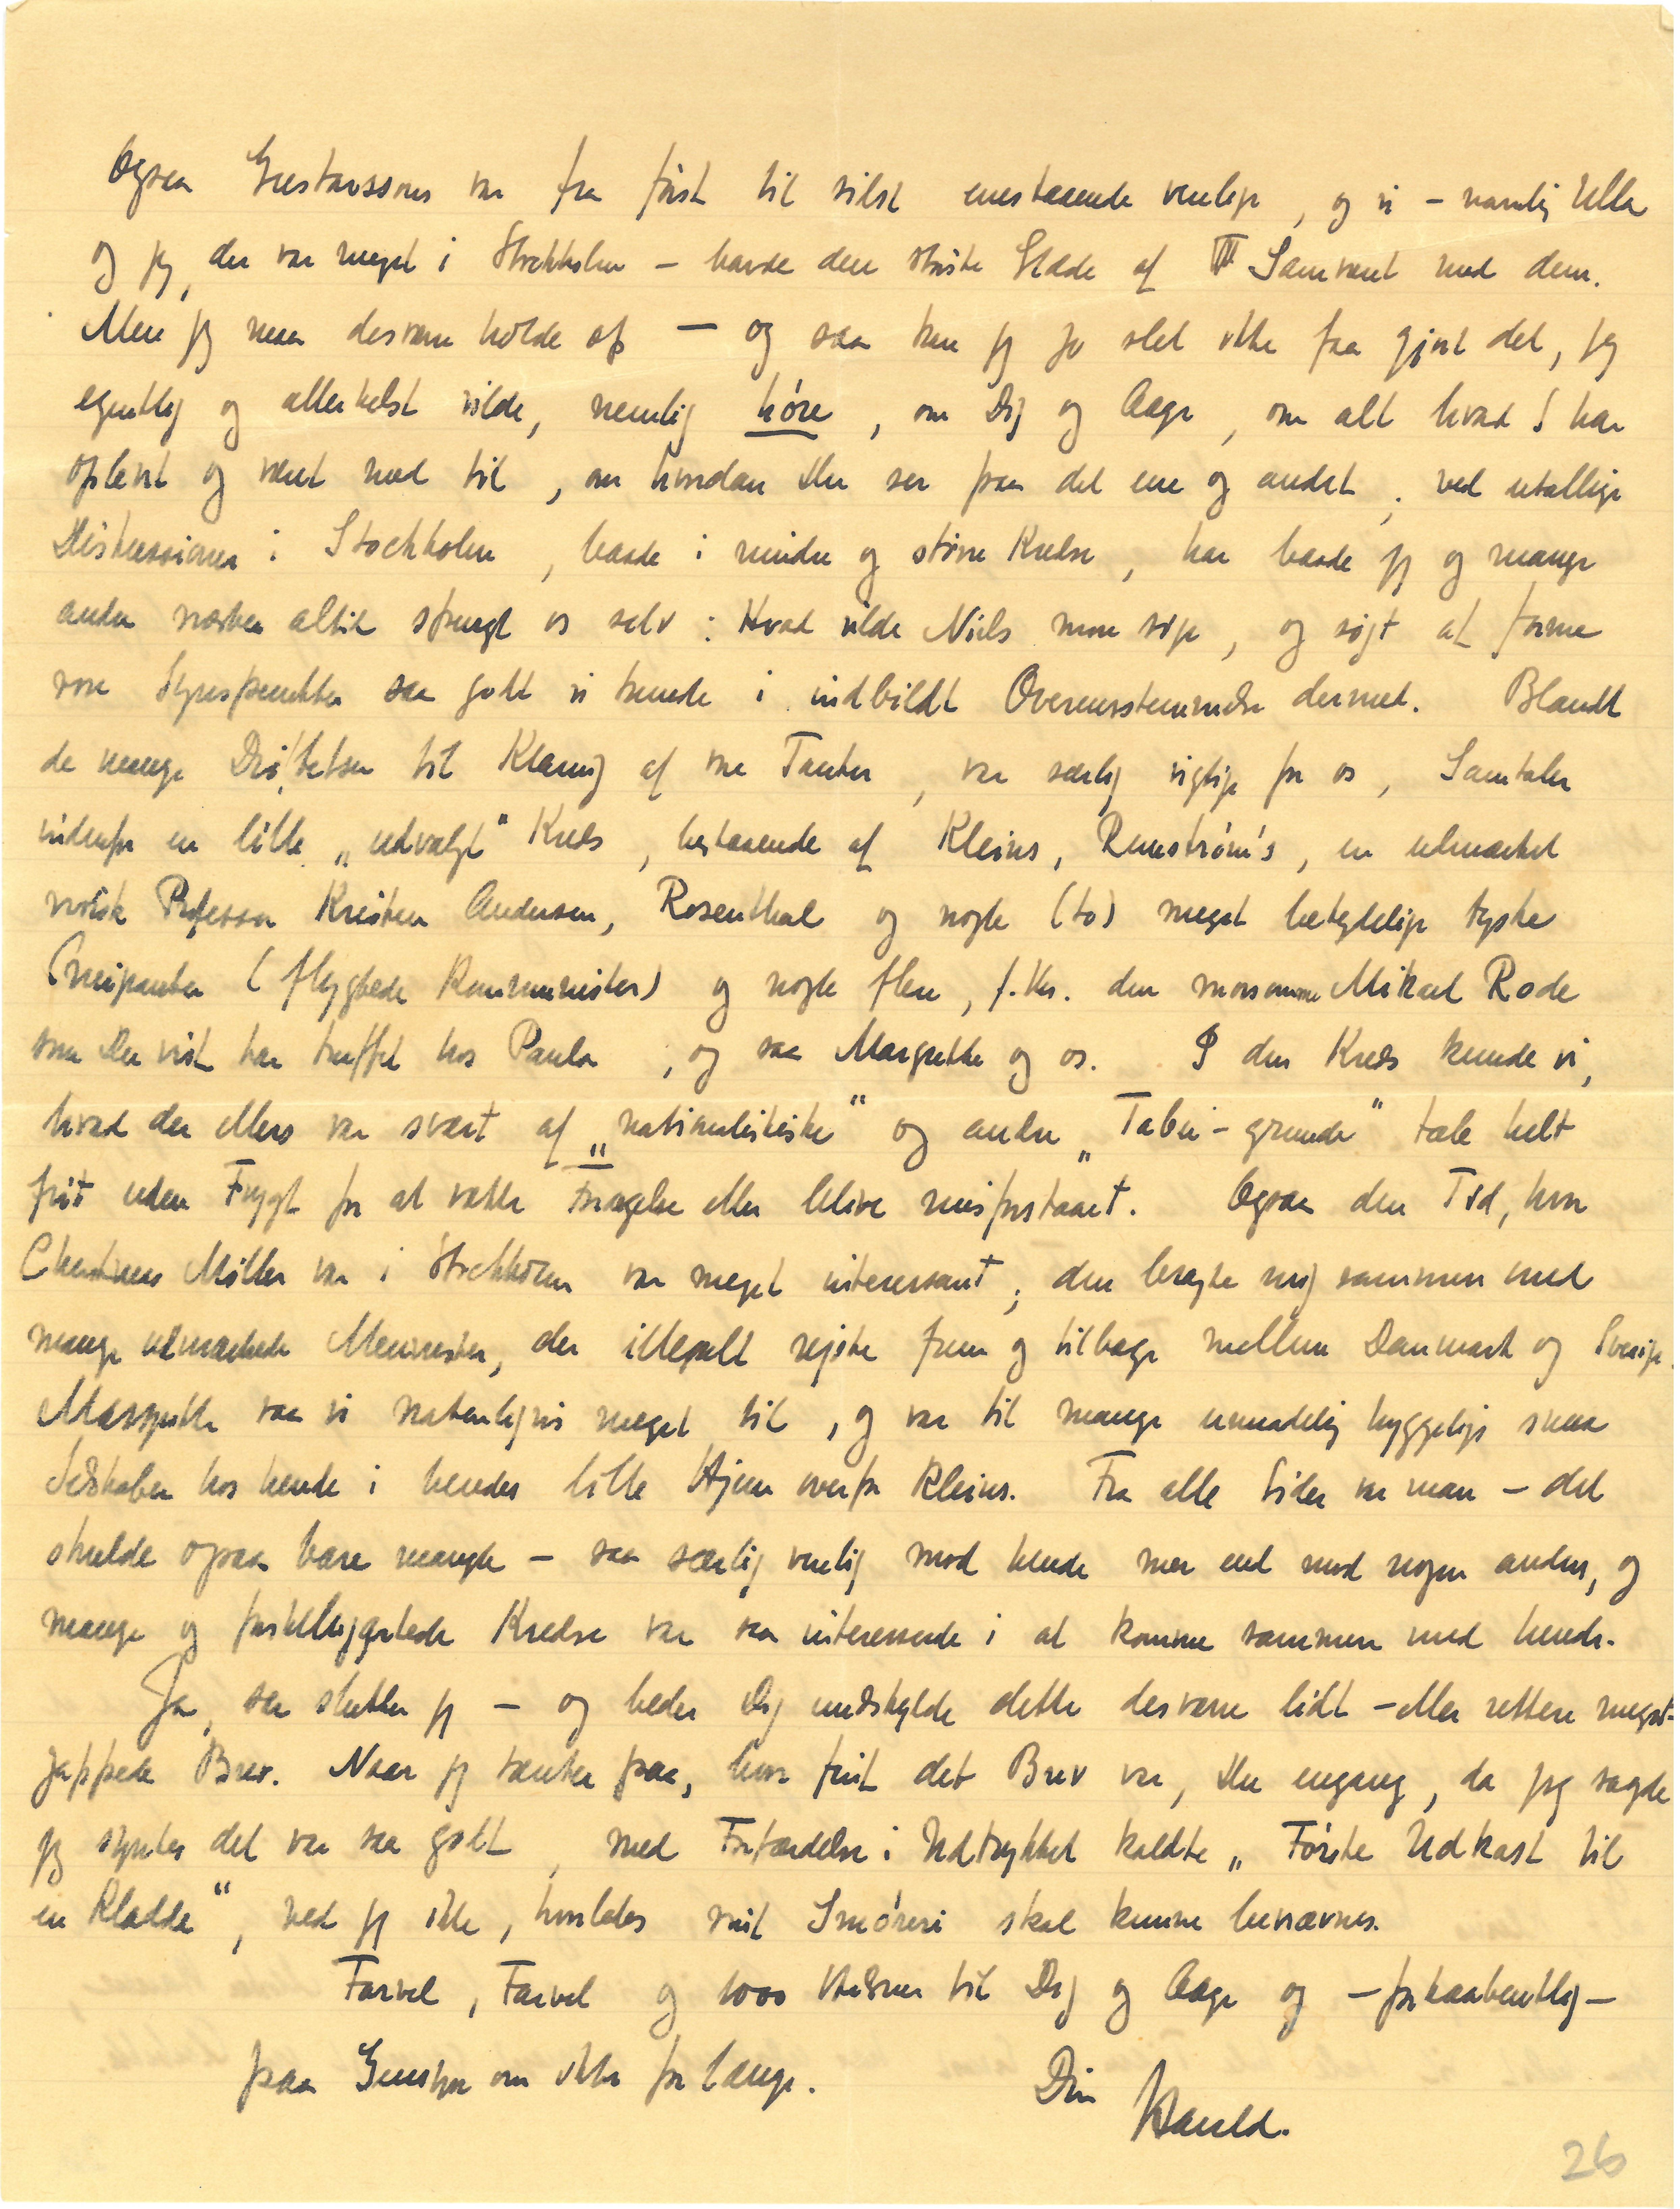 Ogsaa Gustavssons var fra først til sidst enestaaende venlige, og vi – navnlig Ulla
og jeg, der var meget i Stockholm – havde den største Glæde af Samværet med dem.
Men jeg maa desværre holde op – og saa kan jeg jo slet ikke faa gjort det, jeg
egentlig og allerhelst vilde, nemlig høre, om Dig og Aage, om alt hvad I har
oplevet og været med til, om hvordan Du ser paa det ene og andet; ved utallige
Diskussioner i Stockholm, baade i mindre og større Kredse, har baade jeg og mange
andre næsten altid spurgt os selv: Hvad vilde Niels mon sige, og søgt at forme
vore Synspunkter saa godt vi kunde i indbildt Overensstemmelse dermed. Blandt
de mange Drøftelser til Klaring af vore Tanker, var særlig vigtige for os, Samtaler
indenfor en lille „udvalgt" Kreds, bestaaende af Kleins, Runström's, en udmærket
norsk Professor Kristen Andersen, Rosenthal og nogle (to) meget betydelige tyske
Emigranter (flygtede Kommunister) og nogle flere, f. Eks. den morsomme Mikael Rode
som Du vist har truffet hos Paula, og saa Margrethe og os. I den Kreds kunde vi,
hvad der ellers var svært af „nationalistiske" og andre „Tabu-grunde" tale helt
frit uden Frygt for at vække Forargelse eller blive misforstaaet. Ogsaa den Tid, hvor
Christmas Møller var i Stockholm var meget interessant; den bragte mig sammen med
mange udmærkede Mennesker, der illegalt rejste frem og tilbage mellem Danmark og Sverige.
Margrethe saa vi naturligvis meget til, og var til mange umaadelig hyggelige smaa
Selskaber hos hende i hendes lille Hjem overfor Kleins. Fra alle Sider var man – det
skulde ogsaa bare mangle – saa særlig venlig mod hende mer end mod nogen anden, og
mange og forskelligartede Kredse var saa interesserede i at komme sammen med hende.
Ja, saa slutter jeg – og beder Dig undskylde dette desværre lidt – eller rettere meget –
jappede Brev. Naar jeg tænker paa, hvor fint det Brev var, Du engang, da jeg sagde
jeg syntes det var saa godt, med Forfærdelse i Udtrykket kaldte „Første Udkast til
en Kladde", ved jeg ikke, hvorledes mit Smøreri skal kunne benævnes.
Farvel, Farvel og 1000 Hilsner til Dig og Aage og – forhaabentlig –
paa Gensyn om ikke for længe.
Din Harald.
26